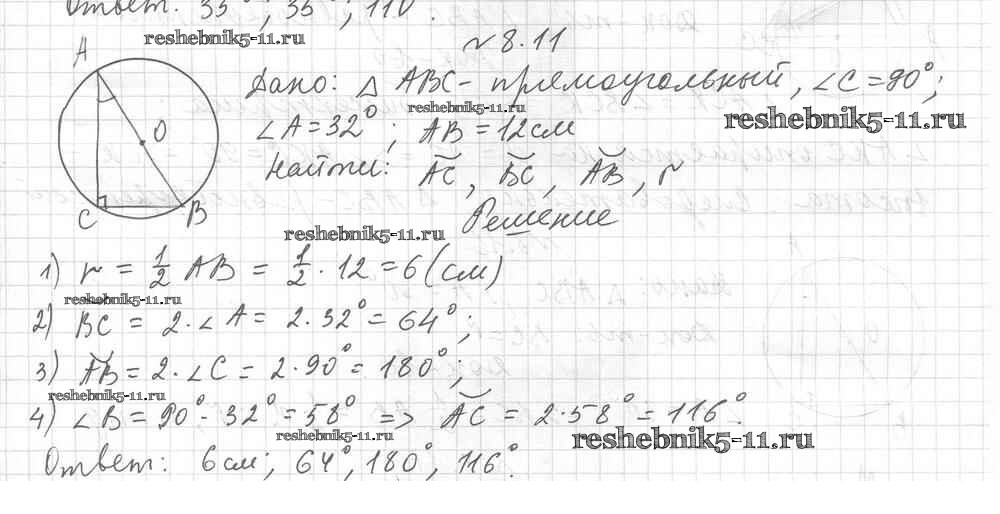 Ответ: 35°; 35°; 110°.
reshebnik5-11.ru
№ 8.11
A
Дано: △ ABC - прямоугольный, ∠C = 90°;
reshebnik5-11.ru
reshebnik5-11.ru
O
∠A = 32°; AB = 12 см
Найти: ◡AC, ◡BC, ◡AB, r
C
B
reshebnik5-11.ru
Решение
1) r = 1/2 AB = 1/2 · 12 = 6 (см)
reshebnik5-11.ru
2) BC = 2 · ∠A = 2 · 32° = 64°;
3) ◡AB = 2 · ∠C = 2 · 90° = 180°;
reshebnik5-11.ru
4) ∠B = 90° - 32° = 58° => ◡AC = 2 · 58° = 116°.
reshebnik5-11.ru
reshebnik5-11.ru
Ответ: 6 см; 64°, 180°, 116°.